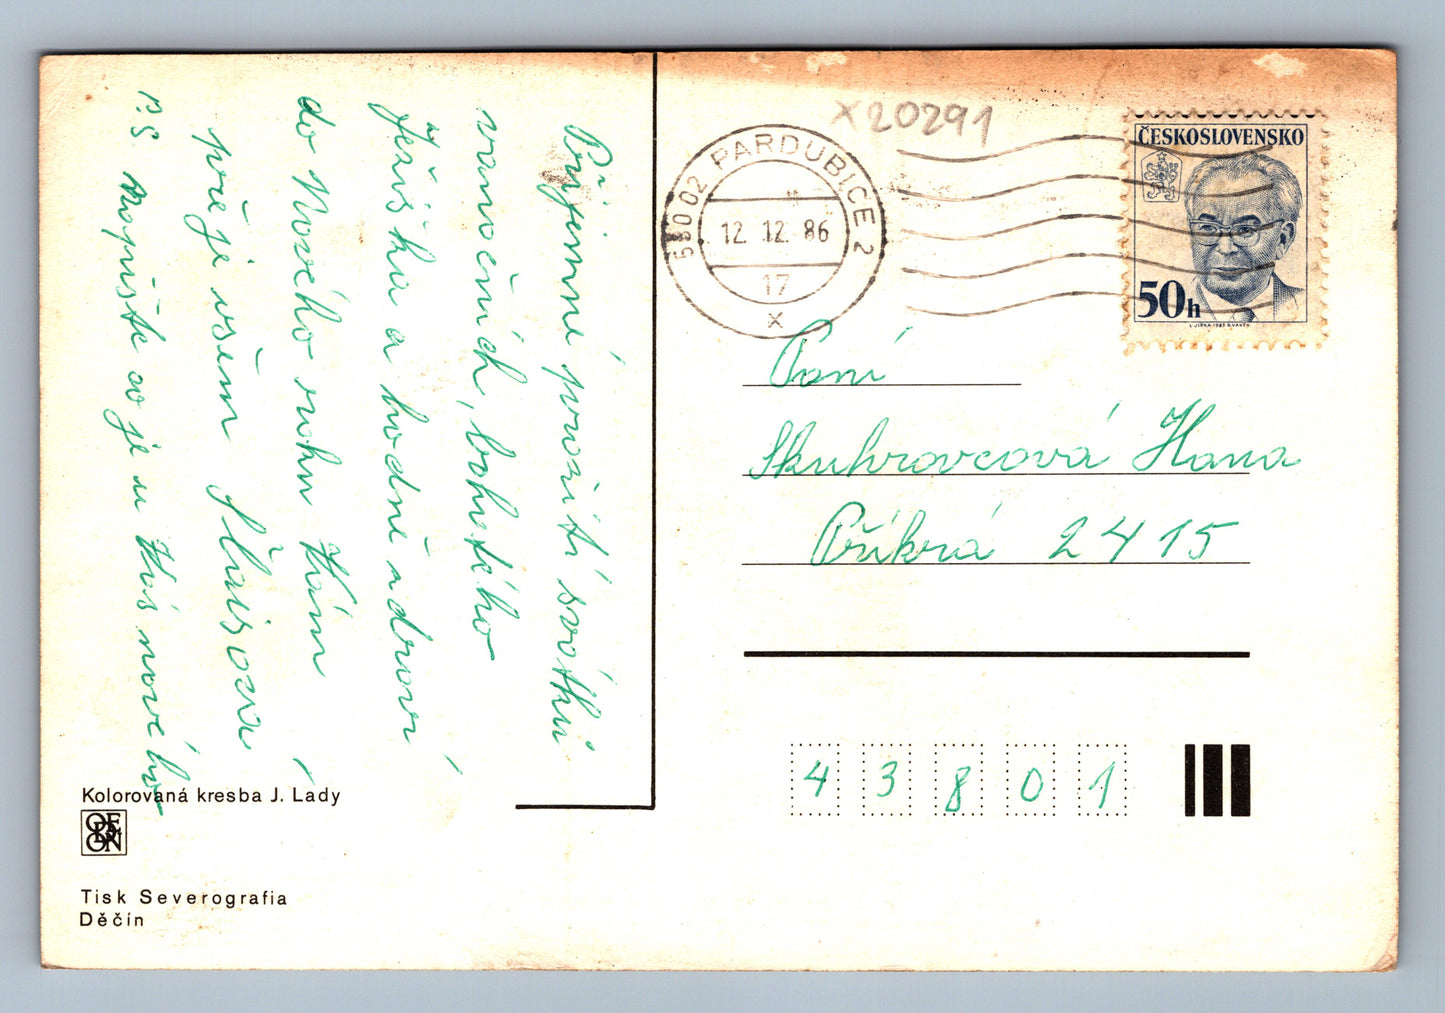 Príjemné prožití svátků
vanočních, bohatého
Ježiška a hodně zdraví
do Nového roku Vám
přeje všem Šlaisová
P.S Napište co je u Vás nového
Kolorovaná kresba J. Lady
ODEON
Tisk Severografia
Děčín
x20291
530 02 PARDUBICE 2
12. 12. 86
17
x
ČESKOSLOVENSKO
50h
Paní
Skuhrovcová Hana
Příkrá 2415
43801